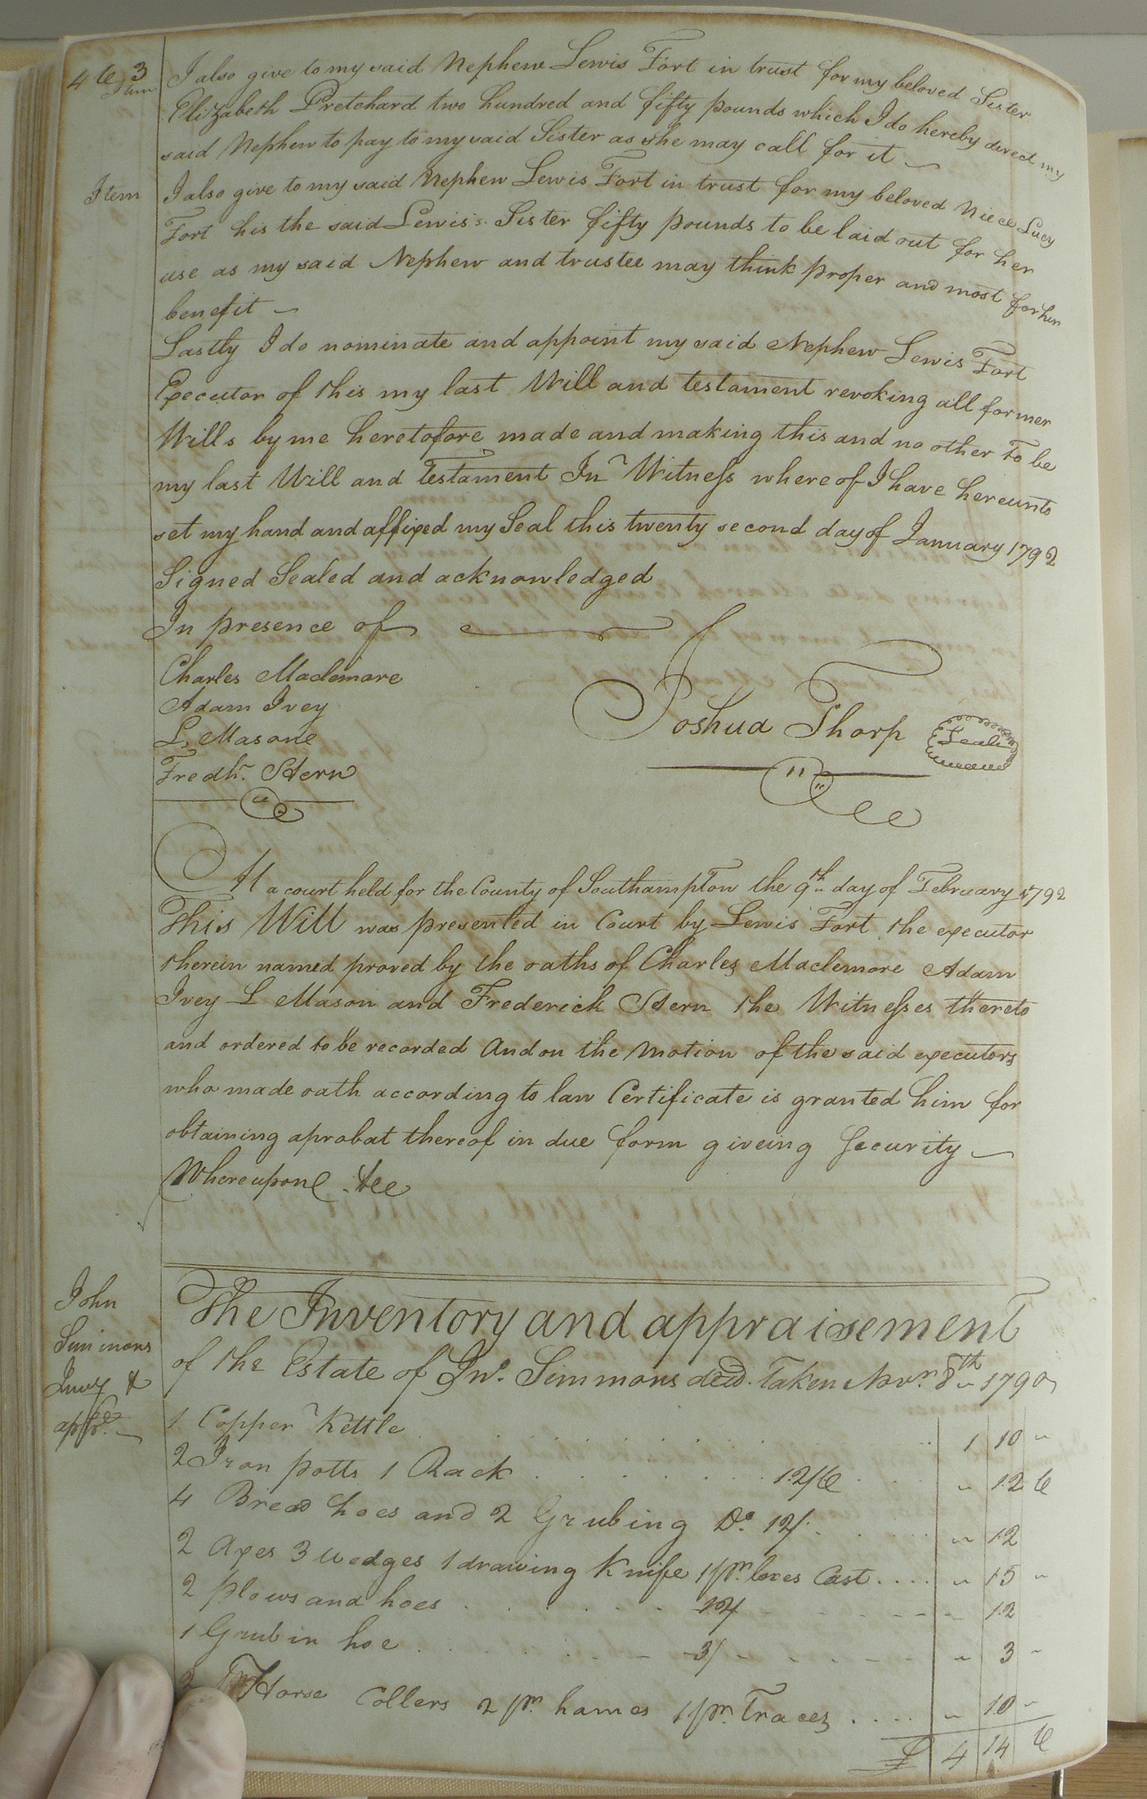 463
Item I also give to my said Nephew Lewis Fort in trust for my beloved Sister
Elizabeth Pretchard two hundred and fifty pounds which I do hereby direct my
said Nephew to pay to my said Sister as she may call for it
Item I also give to my said Nephew Lewis Fort in trust for my beloved Niece Lucy
Fort his the said Lewis's Sister fifty pounds to be laid out for her
use as my said Nephew and trustee may think proper and most for her
benefit
Lastly I do nominate and appoint my said Nephew Lewis Fort
Executor of this my last Will and testament revoking all former
Wills by me heretofore made and making this and no other to be
my last Will and Testament In Witness whereof I have hereunto
set my hand and affixed my Seal this twenty second day of January 1792
Signed Sealed and acknowledged
In presence of
Charles Maclemore
Adam Ivey
L. Masone
Fredk. Stern
Joshua Thorp Seal
At a court held for the County of Southampton the 9th day of February 1792
This Will was presented in Court by Lewis Fort the executor
therein named proved by the oaths of Charles Maclemore Adam
Ivey L Mason and Frederick Stern the Witnesses thereto
and ordered to be recorded And on the Motion of the said executors
who made oath according to law Certificate is granted him for
obtaining aprobat thereof in due form giveing Security
Whereupon &ce
John
Simmons
Invy &
appr.
The Inventory and appraisement
of the Estate of Jno. Simmons decd. Taken Novr. 8th 1790
1 Copper Kettle 1 10 "
2 Iron potts 1 Rack 12/6 " 12 6
4 Bread hoes and 2 Grubing Do. 12/ " 12
2 Axes 3 wedges 1 drawing Knife 1 pr. boxes Cast " 15 "
2 plows and hoes 12/ " 12
1 Grubin hoe 3/ " 3 "
Horse Collers 2 pr. hames 1 pr. Traces " 10 "
£ 4 14 6